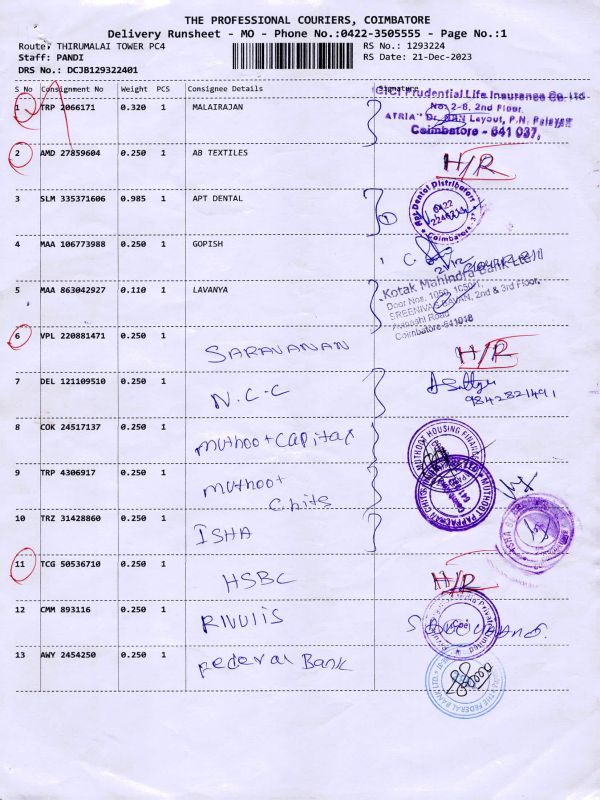 THE PROFESSIONAL COURIERS, COIMBATORE
Delivery Runsheet - MO - Phone No.:0422-3505555 - Page No.:1
Route: THIRUMALAI TOWER PC4 RS No.: 1293224
Staff: PANDI RS Date: 21-Dec-2023
DRS No.: DCJB129322401
S No Consignment No Weight PCS Consignee Details Signature
ICICI Prudential Life Insurance Co. Ltd
1 TRP 2066171 0.320 1 MALAIRAJAN No. 2-8, 2nd Floor
ATRIA Layout, P.N. Palayam
Coimbatore - 641 037.
2 AMD 27859604 0.250 1 AB TEXTILES H/R
3 SLM 335371606 0.985 1 APT DENTAL Apt Dental Distributors 0422 Coimbatore
4 MAA 106773988 0.250 1 GOPISH
5 MAA 863042927 0.110 1 LAVANYA Kotak Mahindra Bank Ltd
Door Nos. 1050, 1050/1,
SREENIVAS BAVAN, 2nd & 3rd Floor,
Avinashi Road
Coimbatore-641018
6 VPL 220881471 0.250 1 SARAVANAN H/R
7 DEL 121109510 0.250 1 N.C.C 9842821491
8 COK 24517137 0.250 1 muthoot Capital MUTHOOT HOUSING FINANCE
9 TRP 4306917 0.250 1 muthoot Chits MUTHOOT PAPPACHAN CHITS
10 TRZ 31428860 0.250 1 ISHA
11 TCG 50536710 0.250 1 HSBC H/R
12 CMM 893116 0.250 1 RIVULIS Private Limited
13 AWY 2454250 0.250 1 Federal Bank THE FEDERAL BANK LTD.